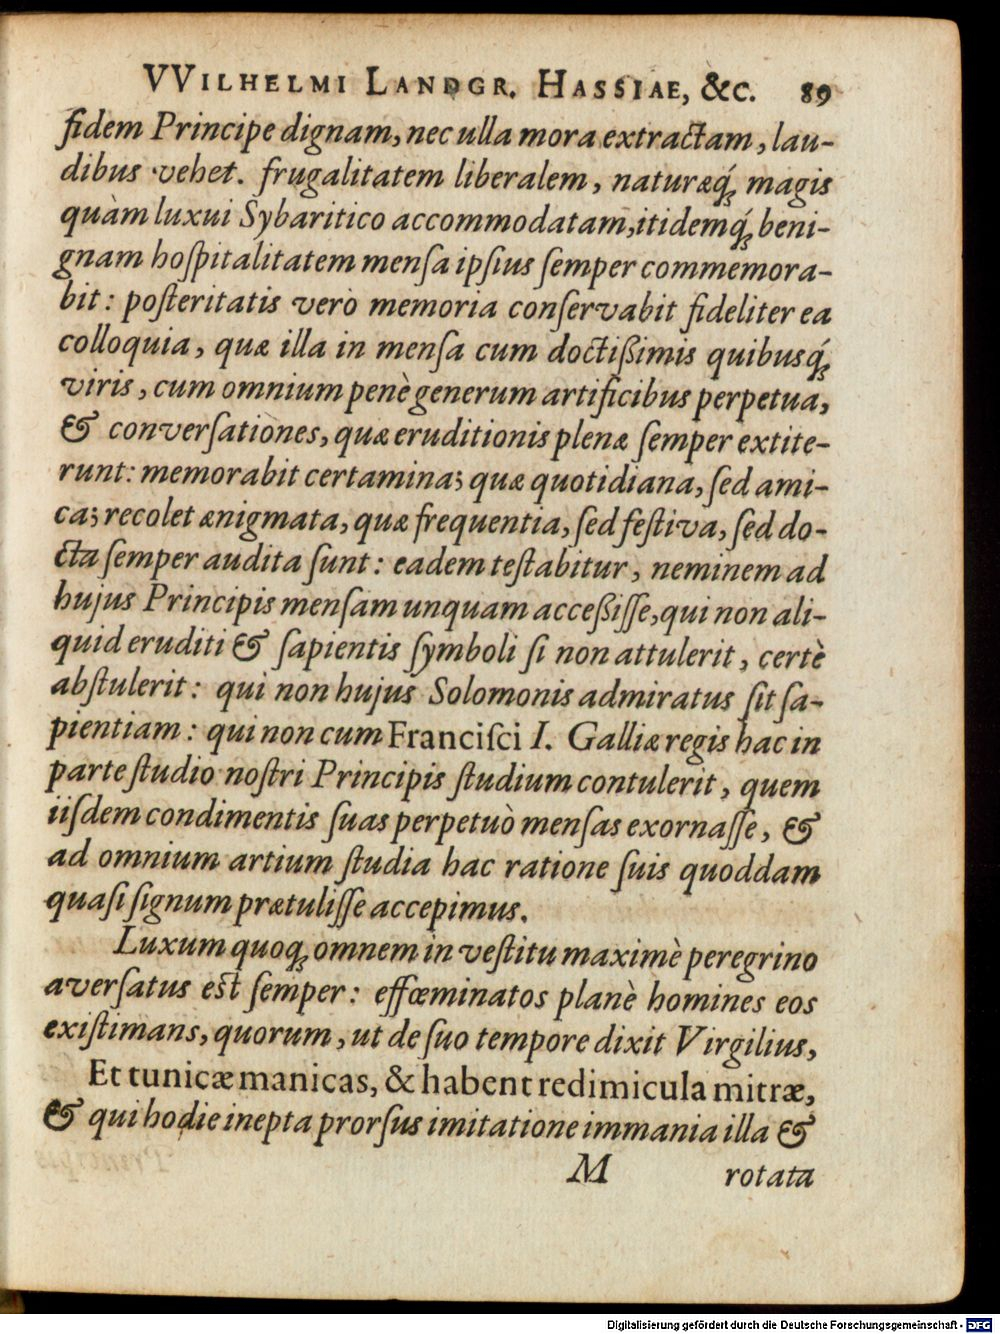 VVILHELMI LANDGR. HASSIAE, &c. 89
fidem Principe dignam, nec ulla mora extractam, lau-
dibus vehet. frugalitatem liberalem, naturæq́ꝫ magis
quàm luxui Sybaritico accommodatam, itidemq́ꝫ beni-
gnam hoſpitalitatem menſa ipſius ſemper commemora-
bit: poſteritatis verò memoria conſervabit fideliter ea
colloquia, quæ illa in menſa cum doctißimis quibusq́ꝫ
viris, cum omnium penè generum artificibus perpetua,
& converſationes, quæ eruditionis plenæ ſemper extite-
runt: memorabit certamina; quæ quotidiana, ſed ami-
ca; recolet ænigmata, quæ frequentia, ſed feſtiva, ſed do-
cta ſemper audita ſunt: eadem teſtabitur, neminem ad
hujus Principis menſam unquam acceßiſſe, qui non ali-
quid eruditi & ſapientis ſymboli ſi non attulerit, certè
abſtulerit: qui non hujus Solomonis admiratus ſit ſa-
pientiam: qui non cum Franciſci I. Galliæ regis hac in
parte ſtudio noſtri Principis ſtudium contulerit, quem
iiſdem condimentis ſuas perpetuò menſas exornaſſe, &
ad omnium artium ſtudia hac ratione ſuis quoddam
quaſi ſignum prætuliſſe accepimus.
Luxum quoqꝫ omnem in veſtitu maximè peregrino
averſatus eſt ſemper: effœminatos planè homines eos
exiſtimans, quorum, ut de ſuo tempore dixit Virgilius,
Et tunicæ manicas, & habent redimicula mitræ,
& qui hodie inepta prorſus imitatione immania illa &
M rotata
Digitalisierung gefördert durch die Deutsche Forschungsgemeinschaft - DFG